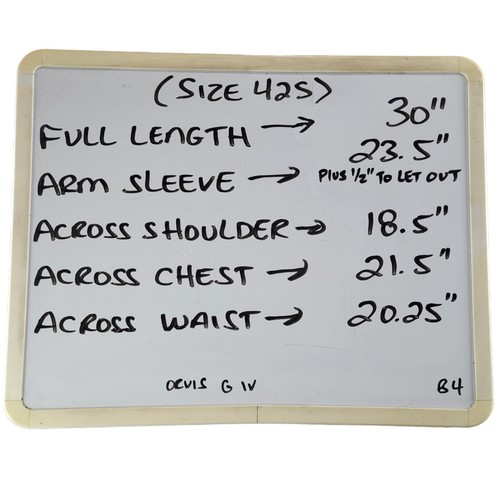 (SIZE 42S)
FULL LENGTH → 30"
ARM SLEEVE → 23.5"
PLUS 1/2" TO LET OUT
ACROSS SHOULDER → 18.5"
ACROSS CHEST → 21.5"
ACROSS WAIST → 20.25"
ORVIS G IV B4